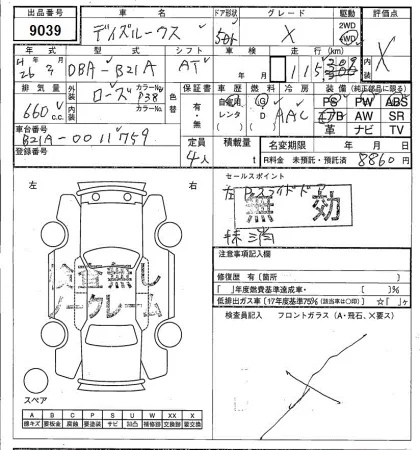 出品番号 車名 ドア形状 グレード 駆動 評価点
9039 デイズルークス 5D X 2WD 4WD X
年式 型式 シフト 車検 走行(km) 外装 内装
H 26年 3 DBA-B21A AT 年 月 115
排気量 外装 ローズ カラーNo. P38 色替 保証書 車歴 燃料 冷房 装備(純正部品に限る)
660 c.c. 内装 カラーNo. 有・無 自家用 レンタ G D AAC PS PW ABS
エアB AW SR
革 ナビ TV
車台番号
B21A-0011759
登録番号
定員 4人 積載量 t 名変期限 年 月 日
R料金 未預託・預託済 8860円
セールスポイント
左 Pスライドドア
無効
抹消
左 右
左 右
検査無し
ノークレーム
注意事項記入欄
修復歴 有【箇所 】
【 】年度燃費基準達成車・【 】%
低排出ガス車【17年度基準75%(該当車は○印)】 ☆【 】ヶ
検査員記入 フロントガラス(A・飛石、×要ス)
スペア
A B C P S U W XX X
擦キズ 要板金 腐蝕 要塗装 サビ 凹凸 補修跡 交換跡 要交換